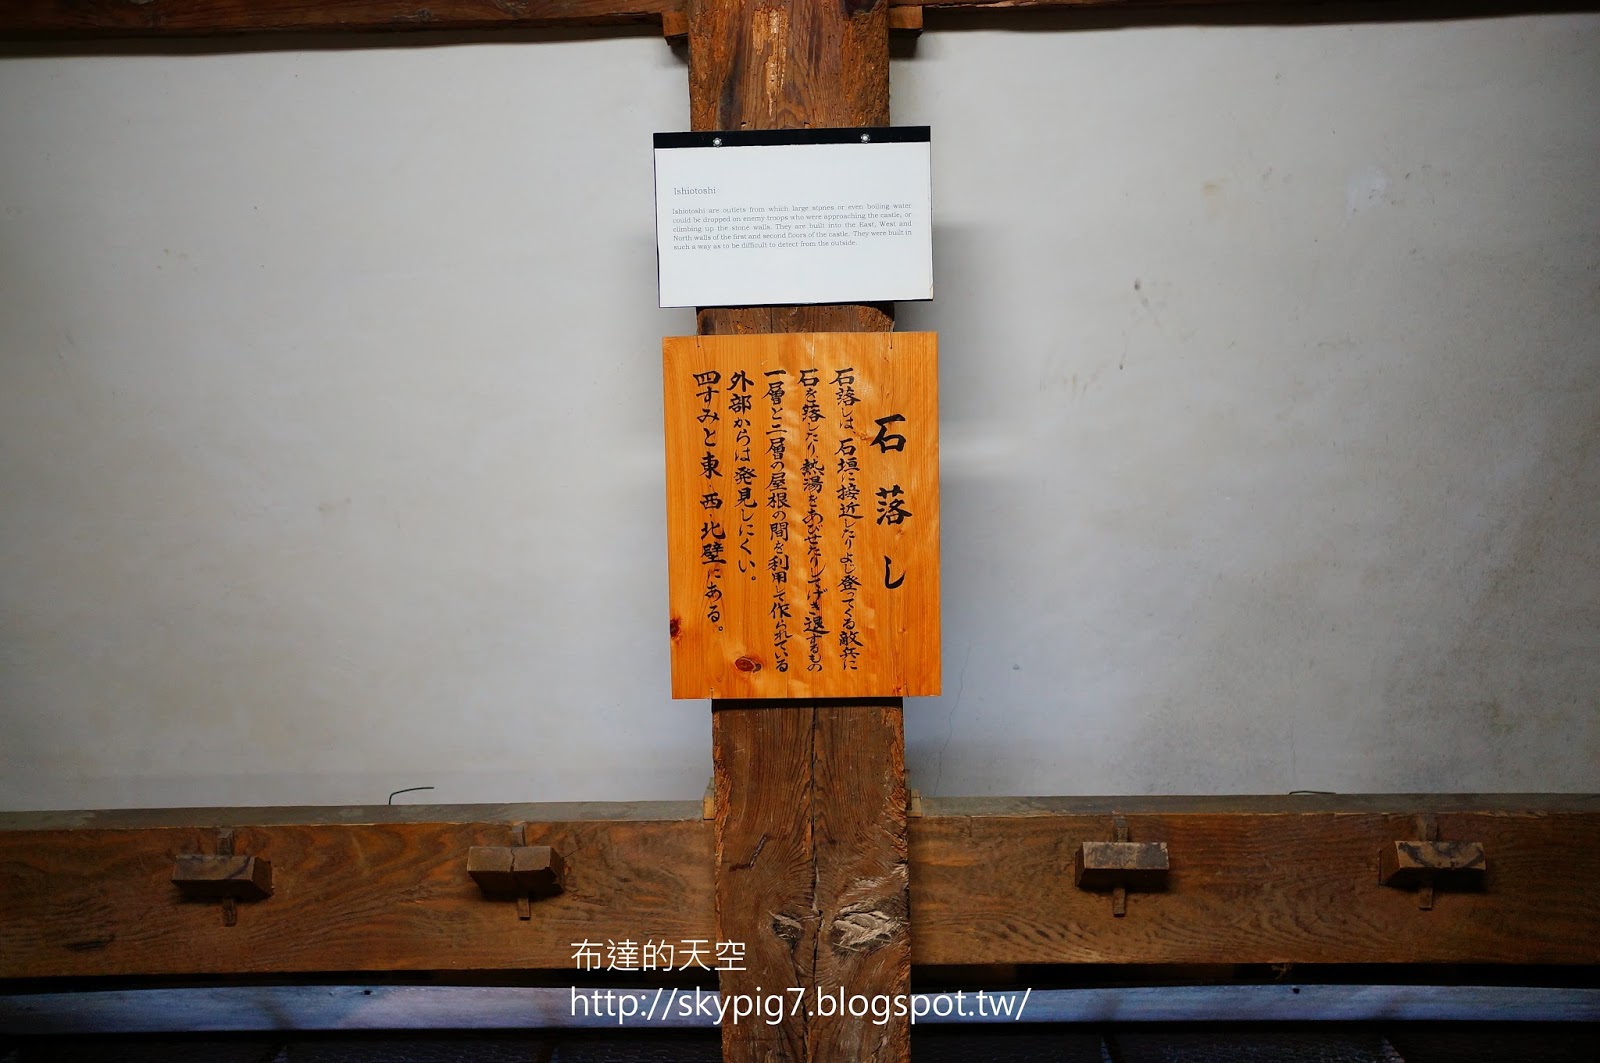 Ishiotoshi
Ishiotoshi are outlets from which large stones or even boiling water
could be dropped on enemy troops who were approaching the castle, or
climbing up the stone walls. They are built into the East, West and
North walls of the first and second floors of the castle. They were built in
such a way as to be difficult to detect from the outside.
石落し
石落しは、石垣に接近したりよじ登ってくる敵兵に
石を落したり、熱湯をあびせたりしてげき退するもの
一層と二層の屋根の間を利用して作られている
外部からは発見しにくい。
四すみと東・西・北壁にある。
布達的天空
http://skypig7.blogspot.tw/